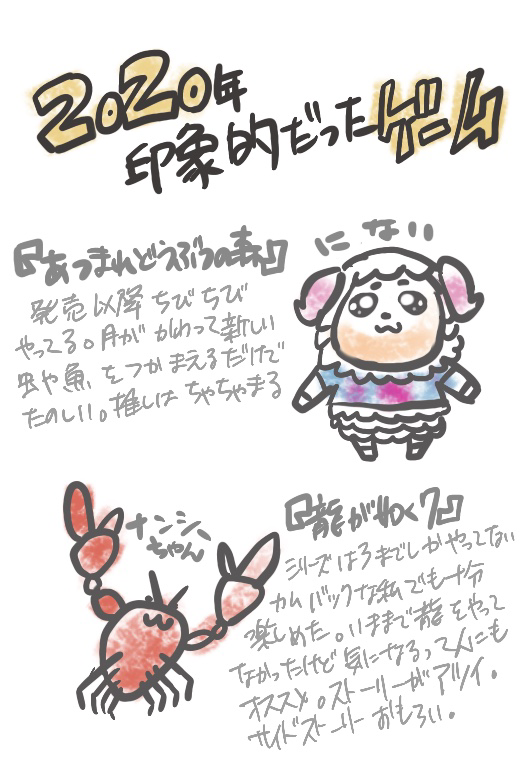 2020年
印象的だったゲーム
『あつまれどうぶつの森』
にない
発売以降ちびちび
やってる。月がかわって新しい
虫や魚をつかまえるだけで
たのしい。推しはちゃちゃまる
ナンシー
ちゃん
『龍が如く7』
シリーズは3までしかやってない
カムバックな私でも十分
楽しめた。いままで龍をやって
なかったけど気になるって人にも
オススメ。ストーリーがアツイ。
サイドストーリーおもろい。